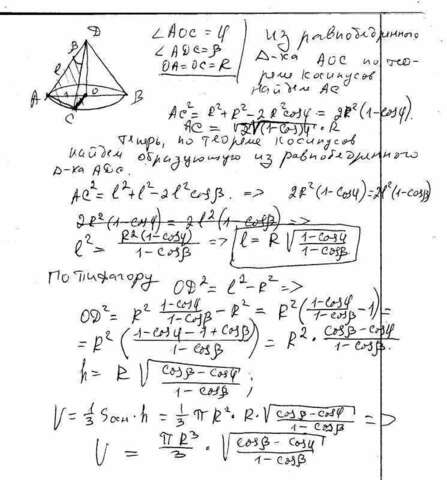 ∠AOC = φ
∠ADC = β
OA = OC = R
Из равнобедренного
Δ-ка AOC по тео-
реме косинусов
найдем AC
D
β
l
A
O
B
C
AC² = R² + R² - 2R²cosφ = 2R²(1-cosφ).
AC = √(2(1-cosφ)) · R
Теперь, по теореме косинусов
найдем образующую из равнобедренного
Δ-ка ADC.
AC² = l² + l² - 2l²cosβ. => 2R²(1-cosφ) = 2l²(1-cosβ)
2R²(1-cosφ) = 2l²(1-cosβ) =>
l² = R²(1-cosφ)/(1-cosβ) => l = R√((1-cosφ)/(1-cosβ))
По Пифагору OD² = l² - R² =>
OD² = R² (1-cosφ)/(1-cosβ) - R² = R²((1-cosφ)/(1-cosβ) - 1) =
= R²((1-cosφ-1+cosβ)/(1-cosβ)) = R² · (cosβ-cosφ)/(1-cosβ).
h = R√((cosβ-cosφ)/(1-cosβ));
V = 1/3 Sосн·h = 1/3 πR²·R·√((cosβ-cosφ)/(1-cosβ)) =>
V = πR³/3 · √((cosβ-cosφ)/(1-cosβ))